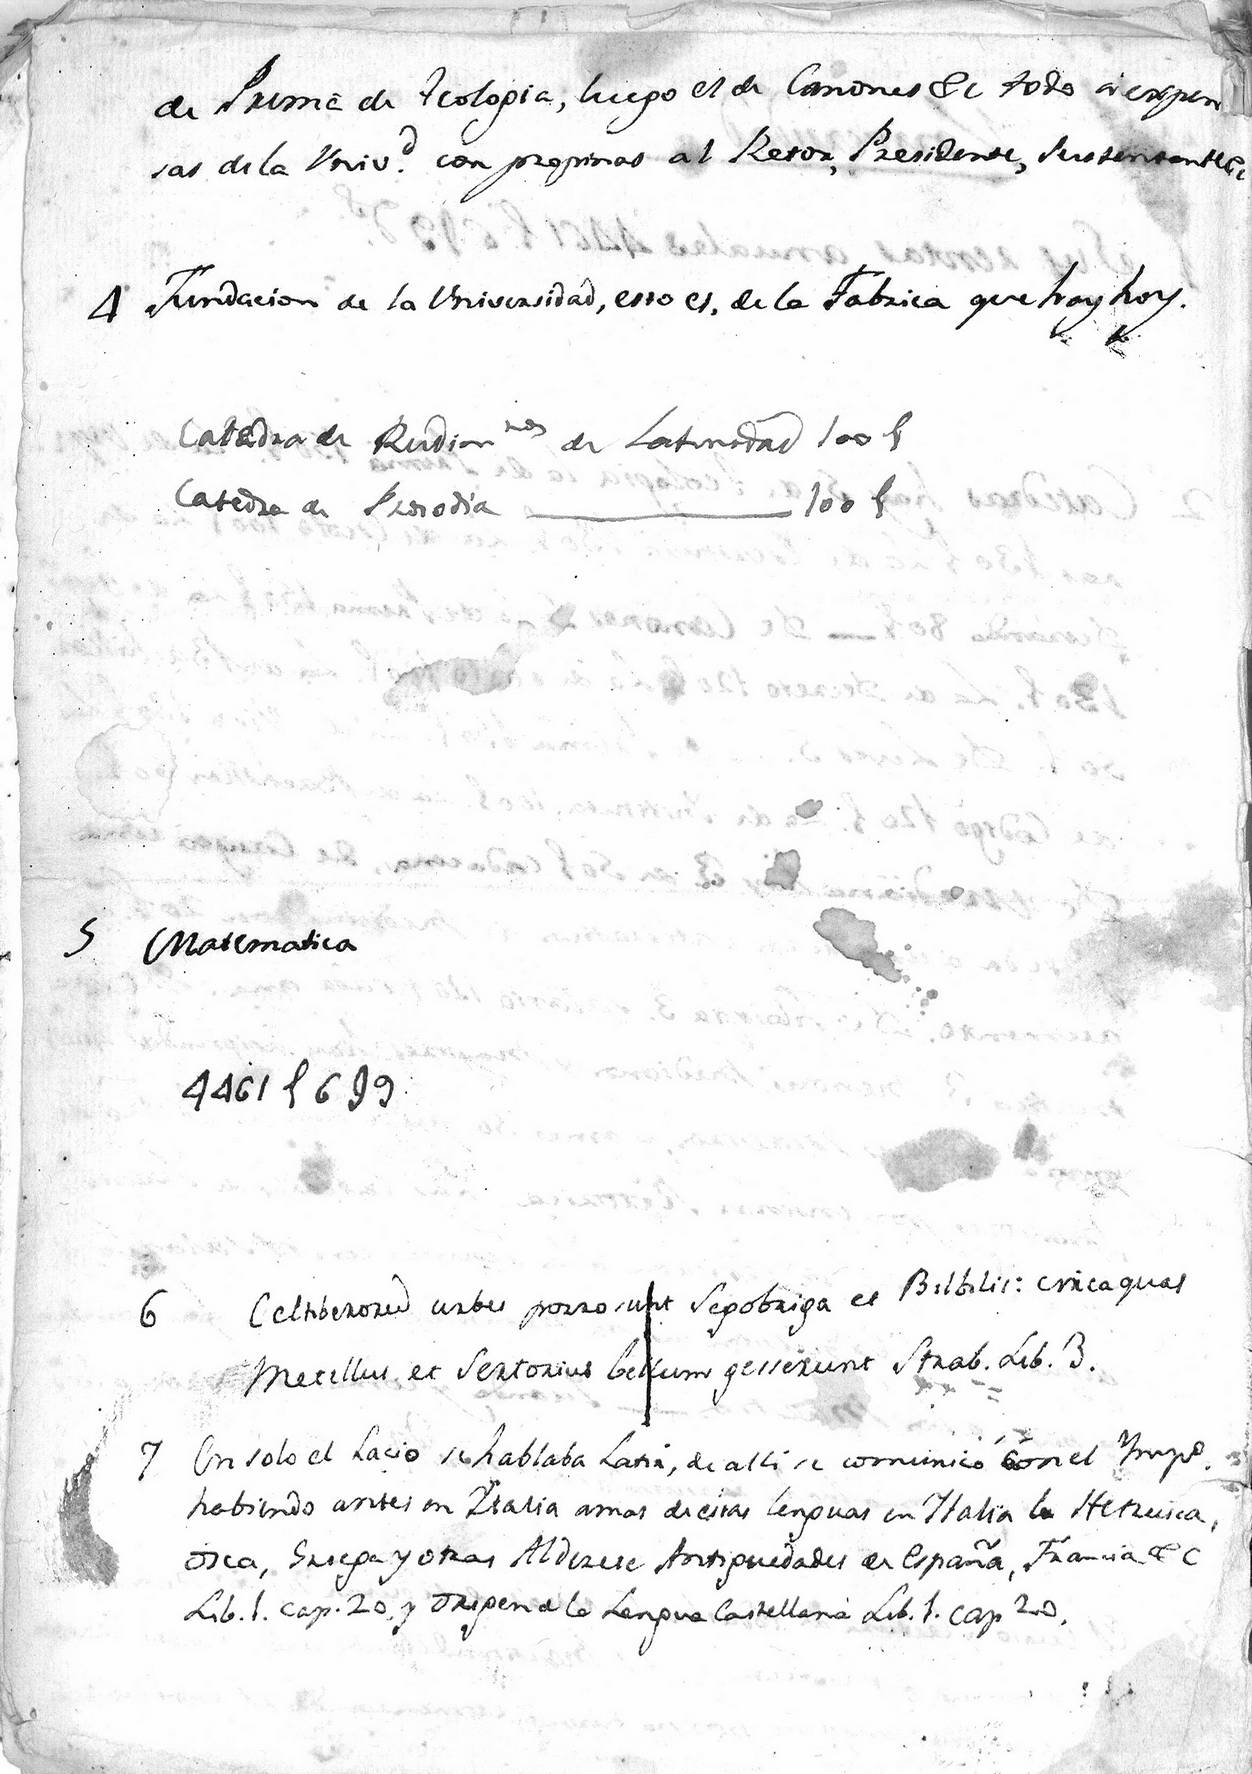 de Prima de Teologia, luego el de Canones &c todo a expen
sas de la Univ.d con propinas al Retor, Presidente, Sustentante &c
4 Fundacion de la Universidad, esto es, de la Fabrica que hay hoy.
Catedra de Rudim.tos de Latinidad 100 l
Catedra de Prosodia 100 l
5 Matematica
4461 l 6 s 9
6 Celtiberorũ urbes porro sunt Segobriga et Bilbilis: circa quas
Metellus et Sertorius bellum gesserunt Strab. Lib. 3.
7 En solo el Lacio se hablaba Latin, de alli se comunicó con el Ymp.o
habiendo antes en Italia amas de estas lenguas en Italia la Hetrusca,
osca, Griega y otras Alderete Antiguedades de España, Francia &c
Lib. 1. cap. 20. y Origen de la Lengua Castellana Lib. 1. cap 20.